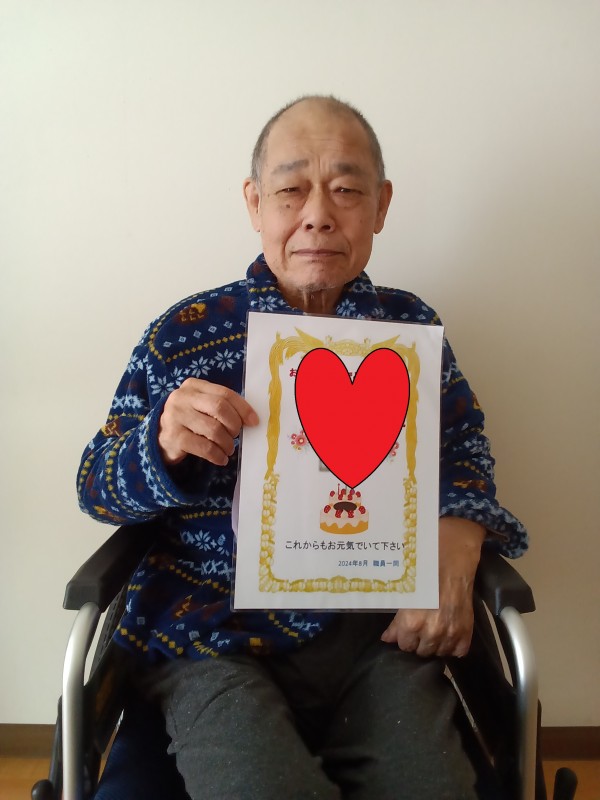 お
これからもお元気でいて下さい
2024年8月 職員一同